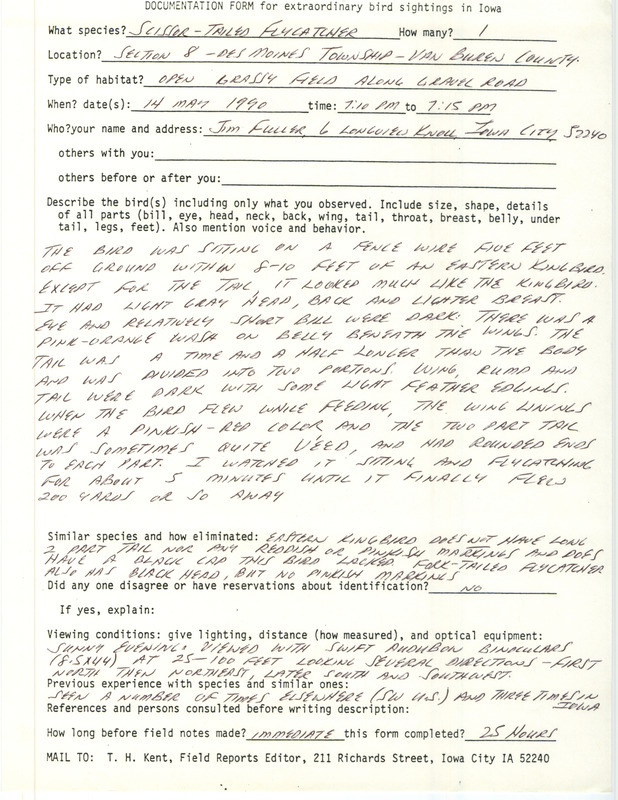 DOCUMENTATION FORM for extraordinary bird sightings in Iowa
What species? SCISSOR-TAILED FLYCATCHER How many? 1
Location? SECTION 8 - DES MOINES TOWNSHIP - VAN BUREN COUNTY.
Type of habitat? OPEN GRASSY FIELD ALONG GRAVEL ROAD
When? date(s): 14 MAY 1990 time: 7:10 PM to 7:15 PM
Who?your name and address: JIM FULLER, 6 LONGVIEW KNOLL, IOWA CITY 52240
others with you:
others before or after you:
Describe the bird(s) including only what you observed. Include size, shape, details
of all parts (bill, eye, head, neck, back, wing, tail, throat, breast, belly, under
tail, legs, feet). Also mention voice and behavior.
THE BIRD WAS SITTING ON A FENCE WIRE FIVE FEET
OFF GROUND WITHIN 8-10 FEET OF AN EASTERN KINGBIRD.
EXCEPT FOR THE TAIL, IT LOOKED MUCH LIKE THE KINGBIRD.
IT HAD LIGHT GRAY HEAD, BACK AND LIGHTER BREAST.
EYE AND RELATIVELY SHORT BILL WERE DARK. THERE WAS A
PINK-ORANGE WASH ON BELLY BENEATH THE WINGS. THE
TAIL WAS A TIME AND A HALF LONGER THAN THE BODY
AND WAS DIVIDED INTO TWO PORTIONS. WING, RUMP AND
TAIL WERE DARK WITH SOME LIGHT FEATHER EDGINGS.
WHEN THE BIRD FLEW WHILE FEEDING, THE WING LININGS
WERE A PINKISH-RED COLOR AND THE TWO PART TAIL
WAS SOMETIMES QUITE V'EED, AND HAD ROUNDED ENDS
TO EACH PART. I WATCHED IT SITTING AND FLYCATCHING
FOR ABOUT 5 MINUTES UNTIL IT FINALLY FLEW
200 YARDS OR SO AWAY
Similar species and how eliminated: EASTERN KINGBIRD DOES NOT HAVE LONG
2 PART TAIL NOR ANY REDDISH OR PINKISH MARKINGS AND DOES
HAVE A BLACK CAP THIS BIRD LACKED. FORK-TAILED FLYCATCHER
ALSO HAS BLACK HEAD, BUT NO PINKISH MARKINGS
Did any one disagree or have reservations about identification? NO
If yes, explain:
Viewing conditions: give lighting, distance (how measured), and optical equipment:
SUNNY EVENING. VIEWED WITH SWIFT AUDUBON BINOCULARS
(8.5X44) AT 25-100 FEET LOOKING SEVERAL DIRECTIONS - FIRST
NORTH THEN NORTHEAST, LATER SOUTH AND SOUTHWEST.
Previous experience with species and similar ones:
SEEN A NUMBER OF TIMES ELSEWHERE (SW U.S.) AND THREE TIMES IN
IOWA
References and persons consulted before writing description:
How long before field notes made? IMMEDIATE this form completed? 25 HOURS
MAIL TO: T. H. Kent, Field Reports Editor, 211 Richards Street, Iowa City IA 52240